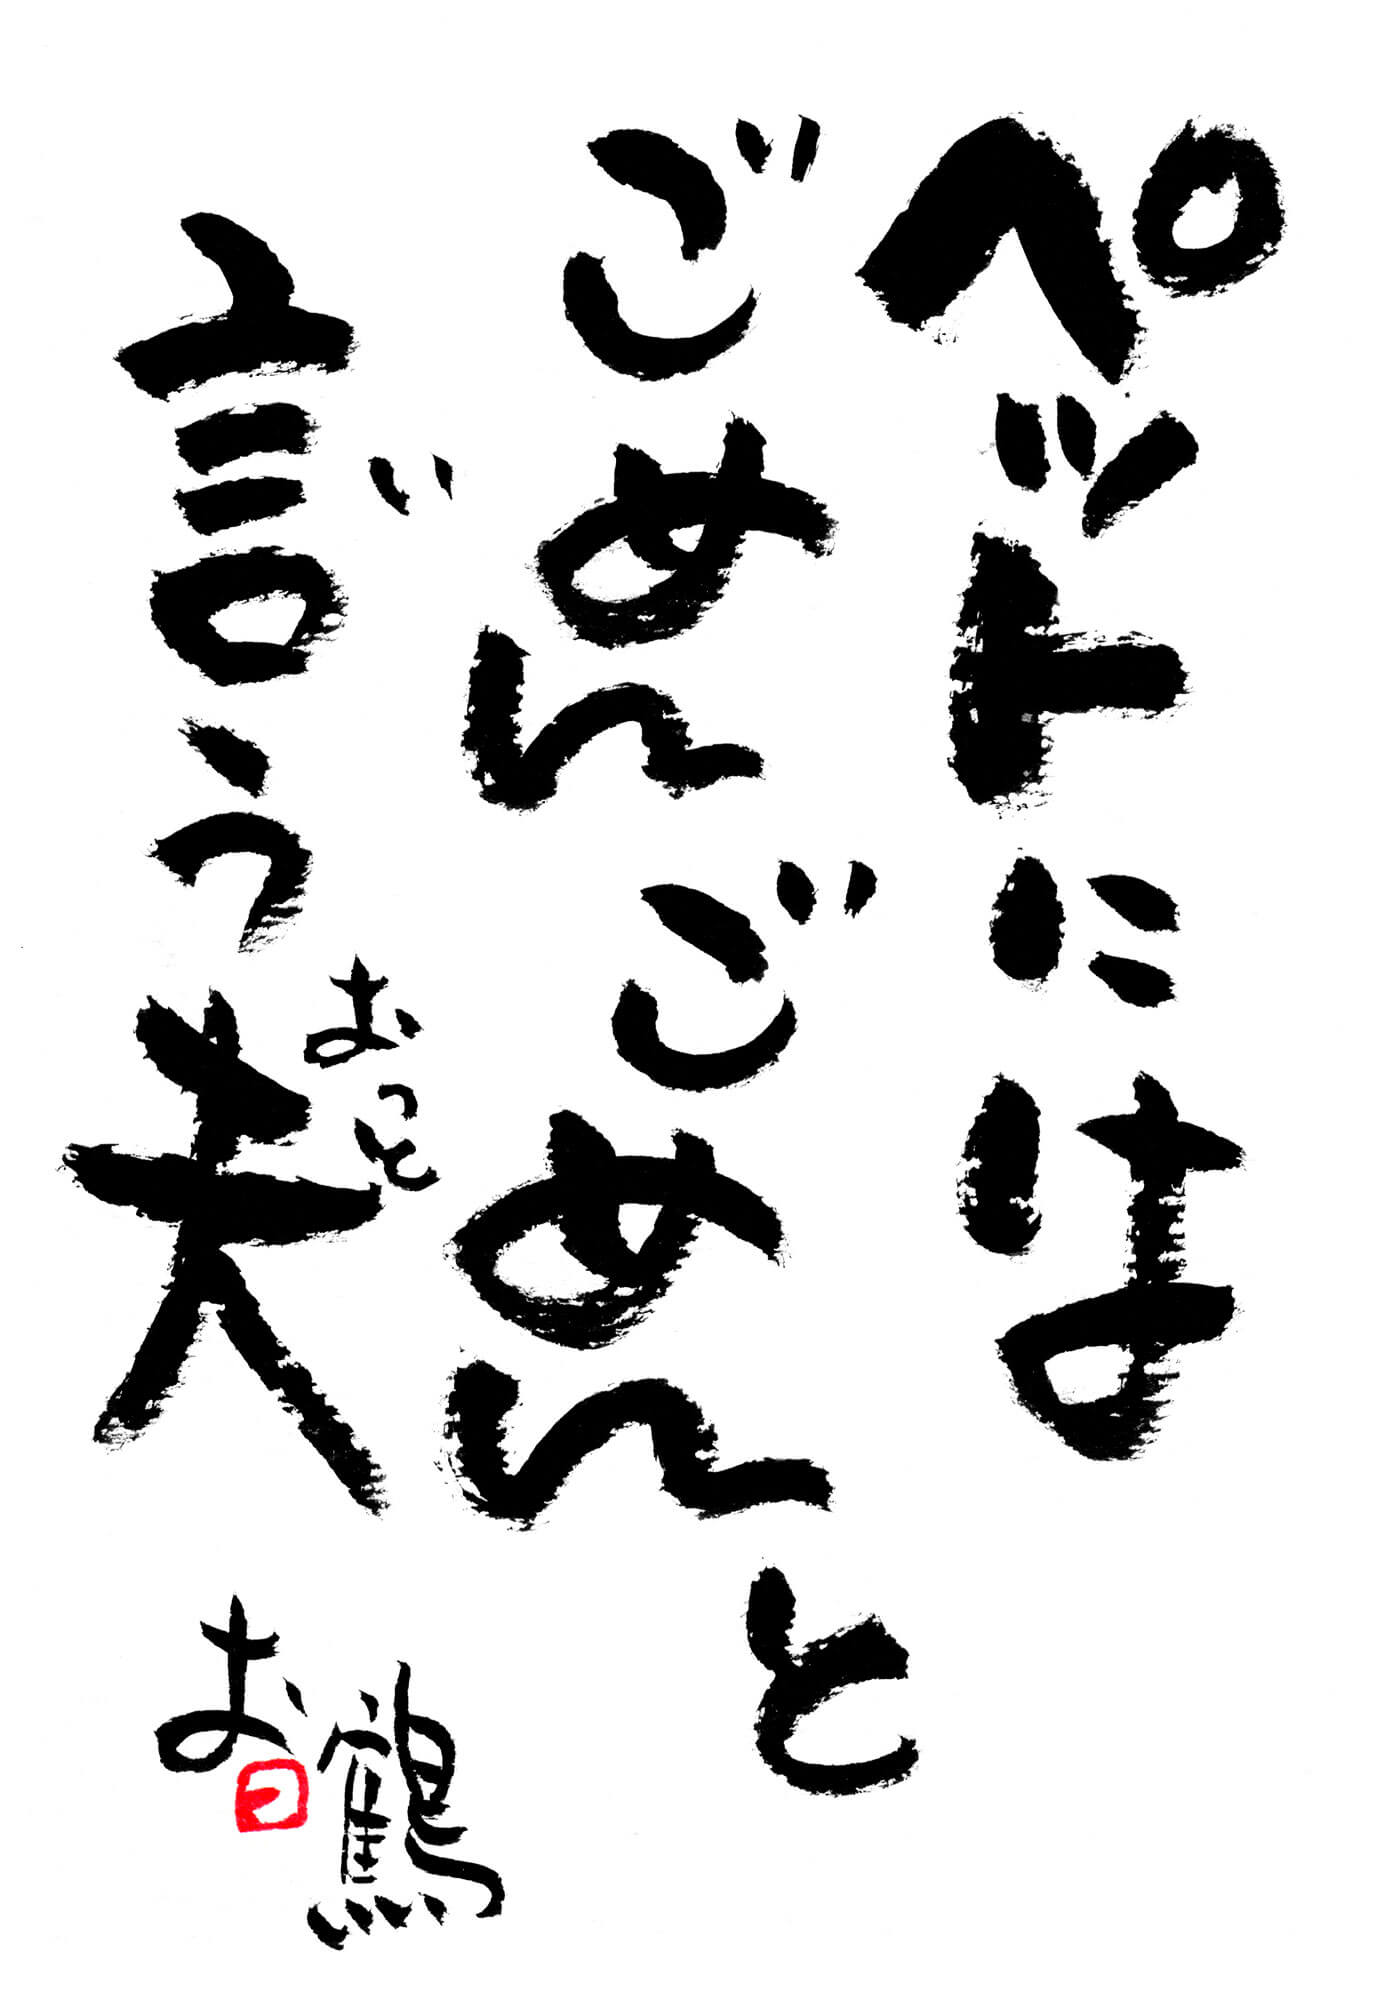 ペットには
ごめんごめんと
言う夫
い
おっと
お鶴
つ